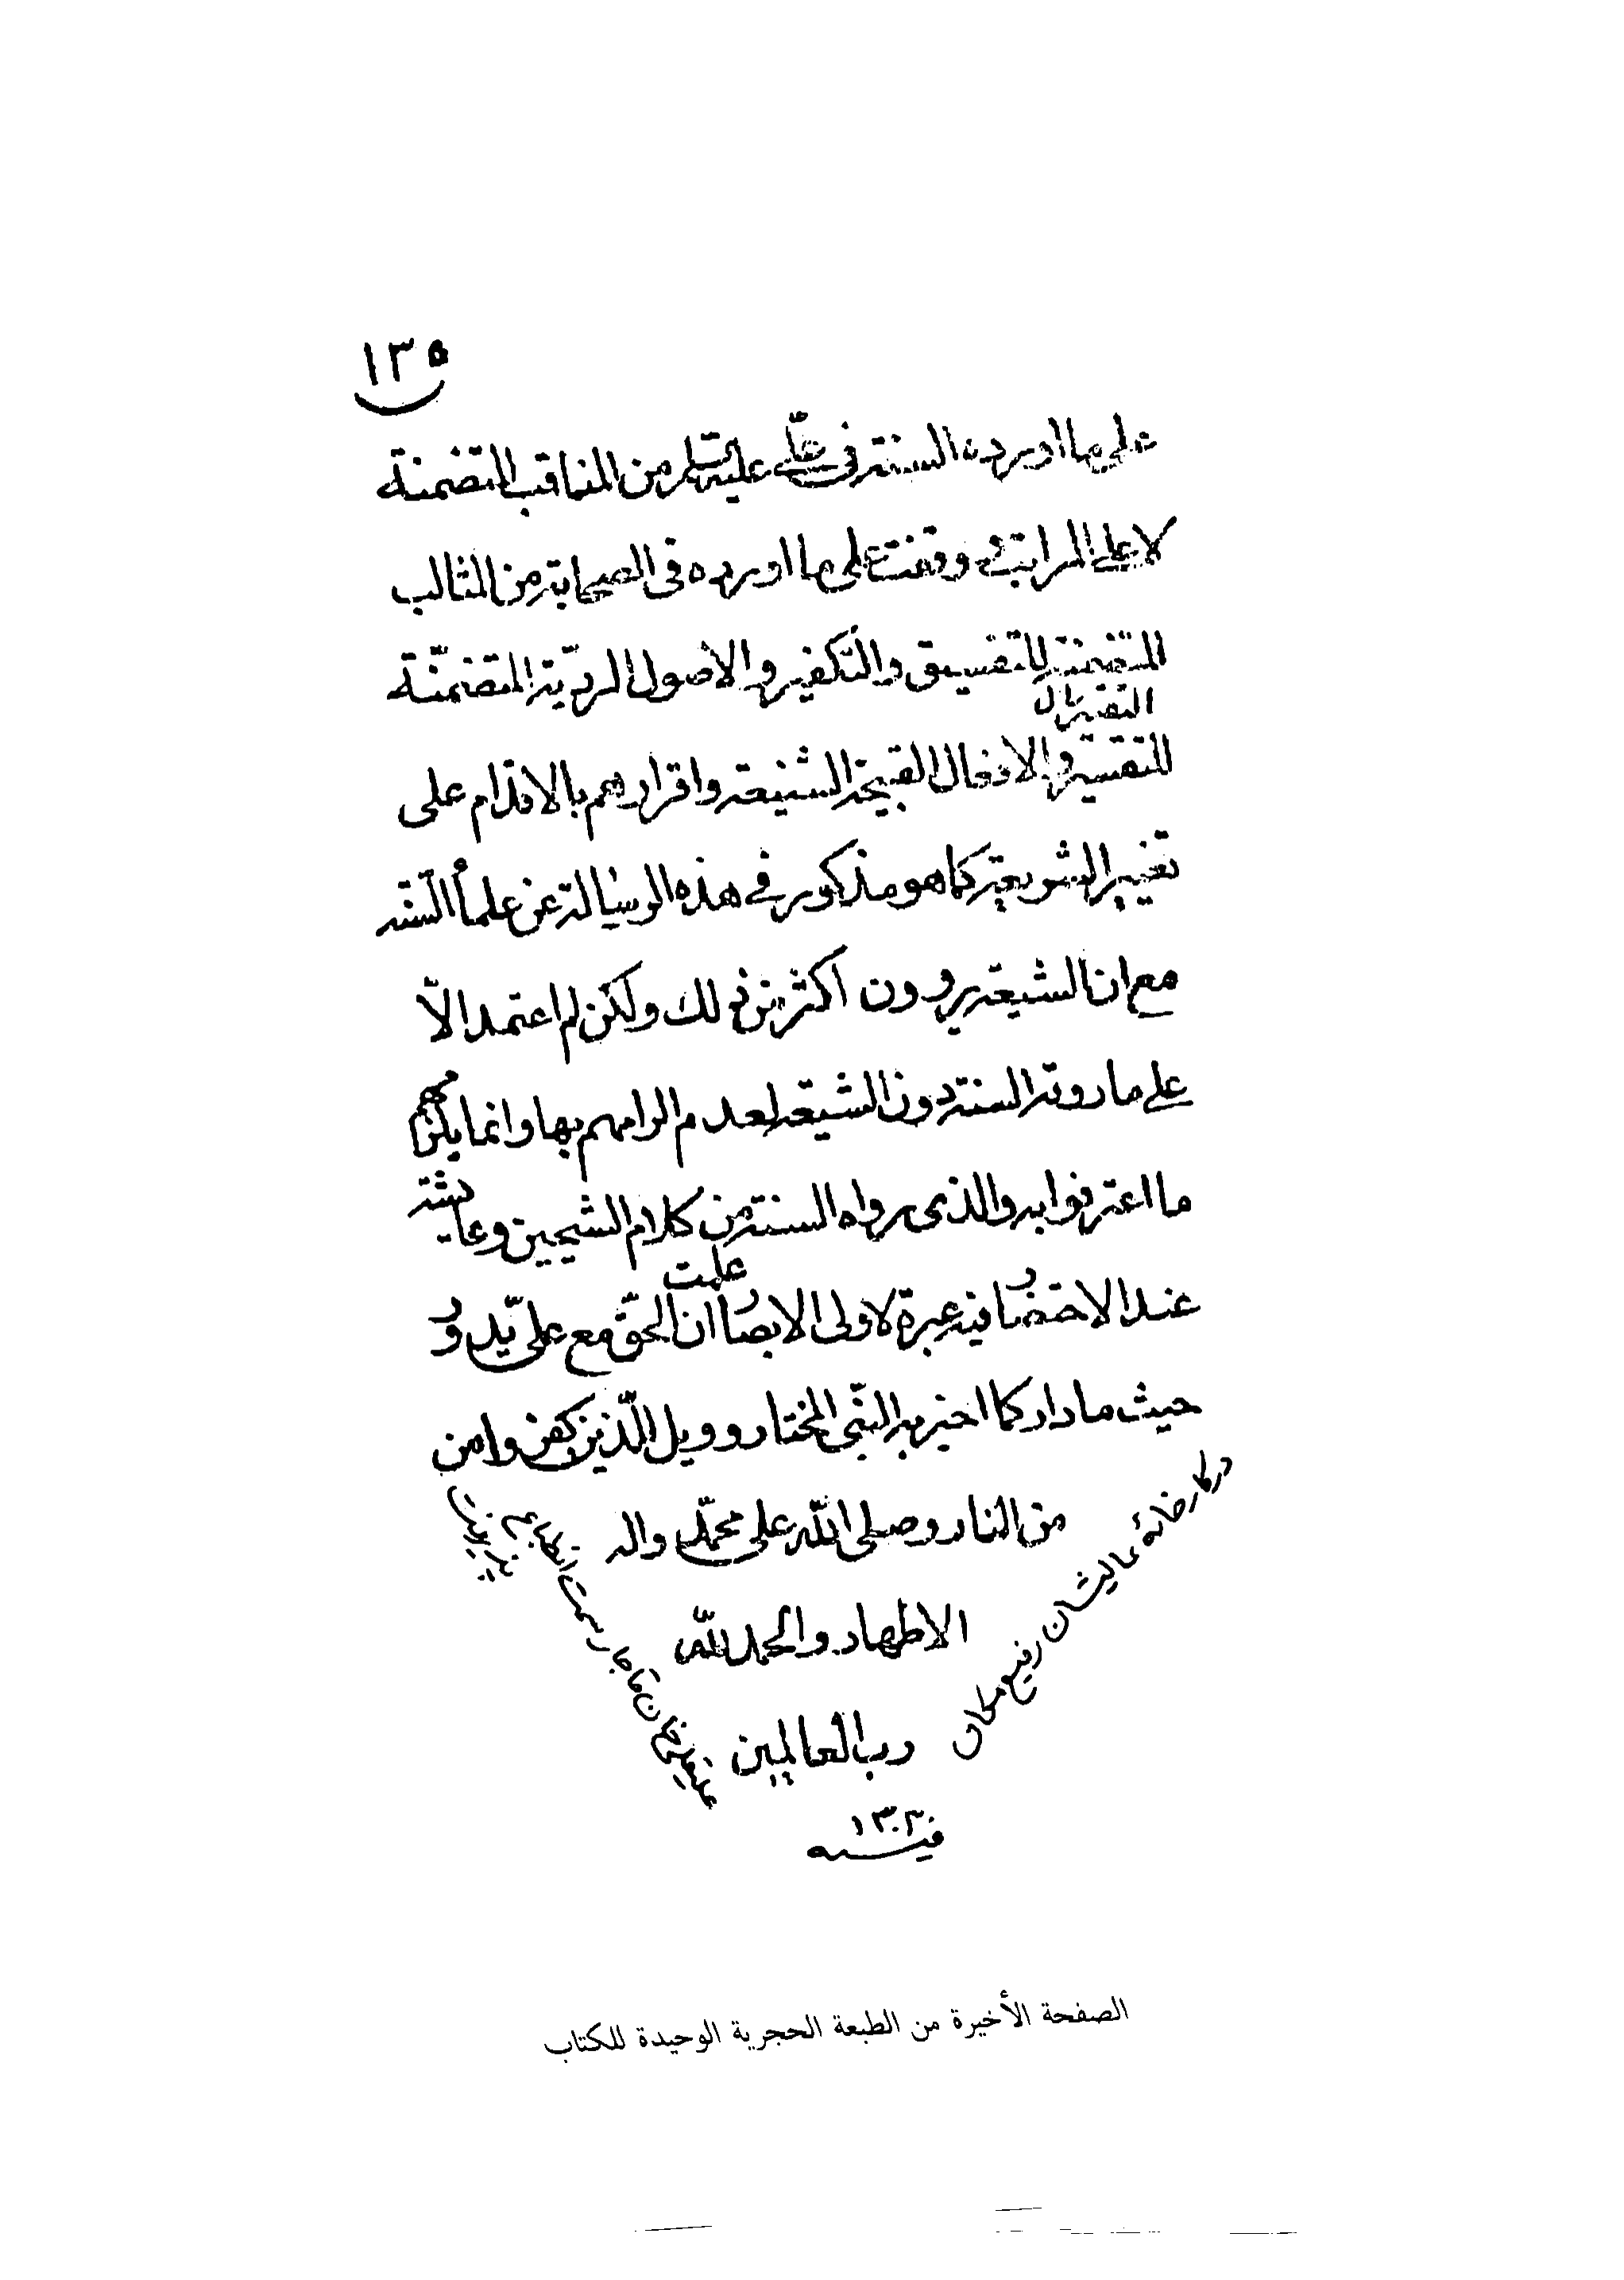 ١٣٥
على ما اورده السنة فى علىّ عليه السّلم من المناقب المتضمنة
لاعلى المراتب و وقفت على ما اورده فى الصحابة من المثالب
المتضمنة للتفسيق والتكفير و الاصول الرديّة المتضمنّة
للتقسير والافعال القبيحة الشنيعة واقرارهم بالاقدام على
تغيير الشريعة كما هو مذكور فى هذه الرسالة عن علمأ السّنة
مع ان الشيعة يروون اكثر من ذلك ولكن لم اعتمد الّا
على ما روته السنة دون الشيعة لعدم الزامهم بها وانما يلزمهم
ما اعترفوا به والذى رواه السنة من كلام الشيخين وعايشة
عند الاحتضار فيه عبرة لاولى الابصار علمت ان الحقّ مع علىّ يدور
حيث ما دار كما اخبر به النبّى المختار وويل الّذين كفروا من
من النار وصلى اللّه على محمّد واله
الاطهار والحمد للّه
رب العالمين
در كارخانهٔ عاليشان رفيع مكان
فى سنه ١٣٠٢
الصفحة الأخيرة من الطبعة الحجرية الوحيدة للكتاب